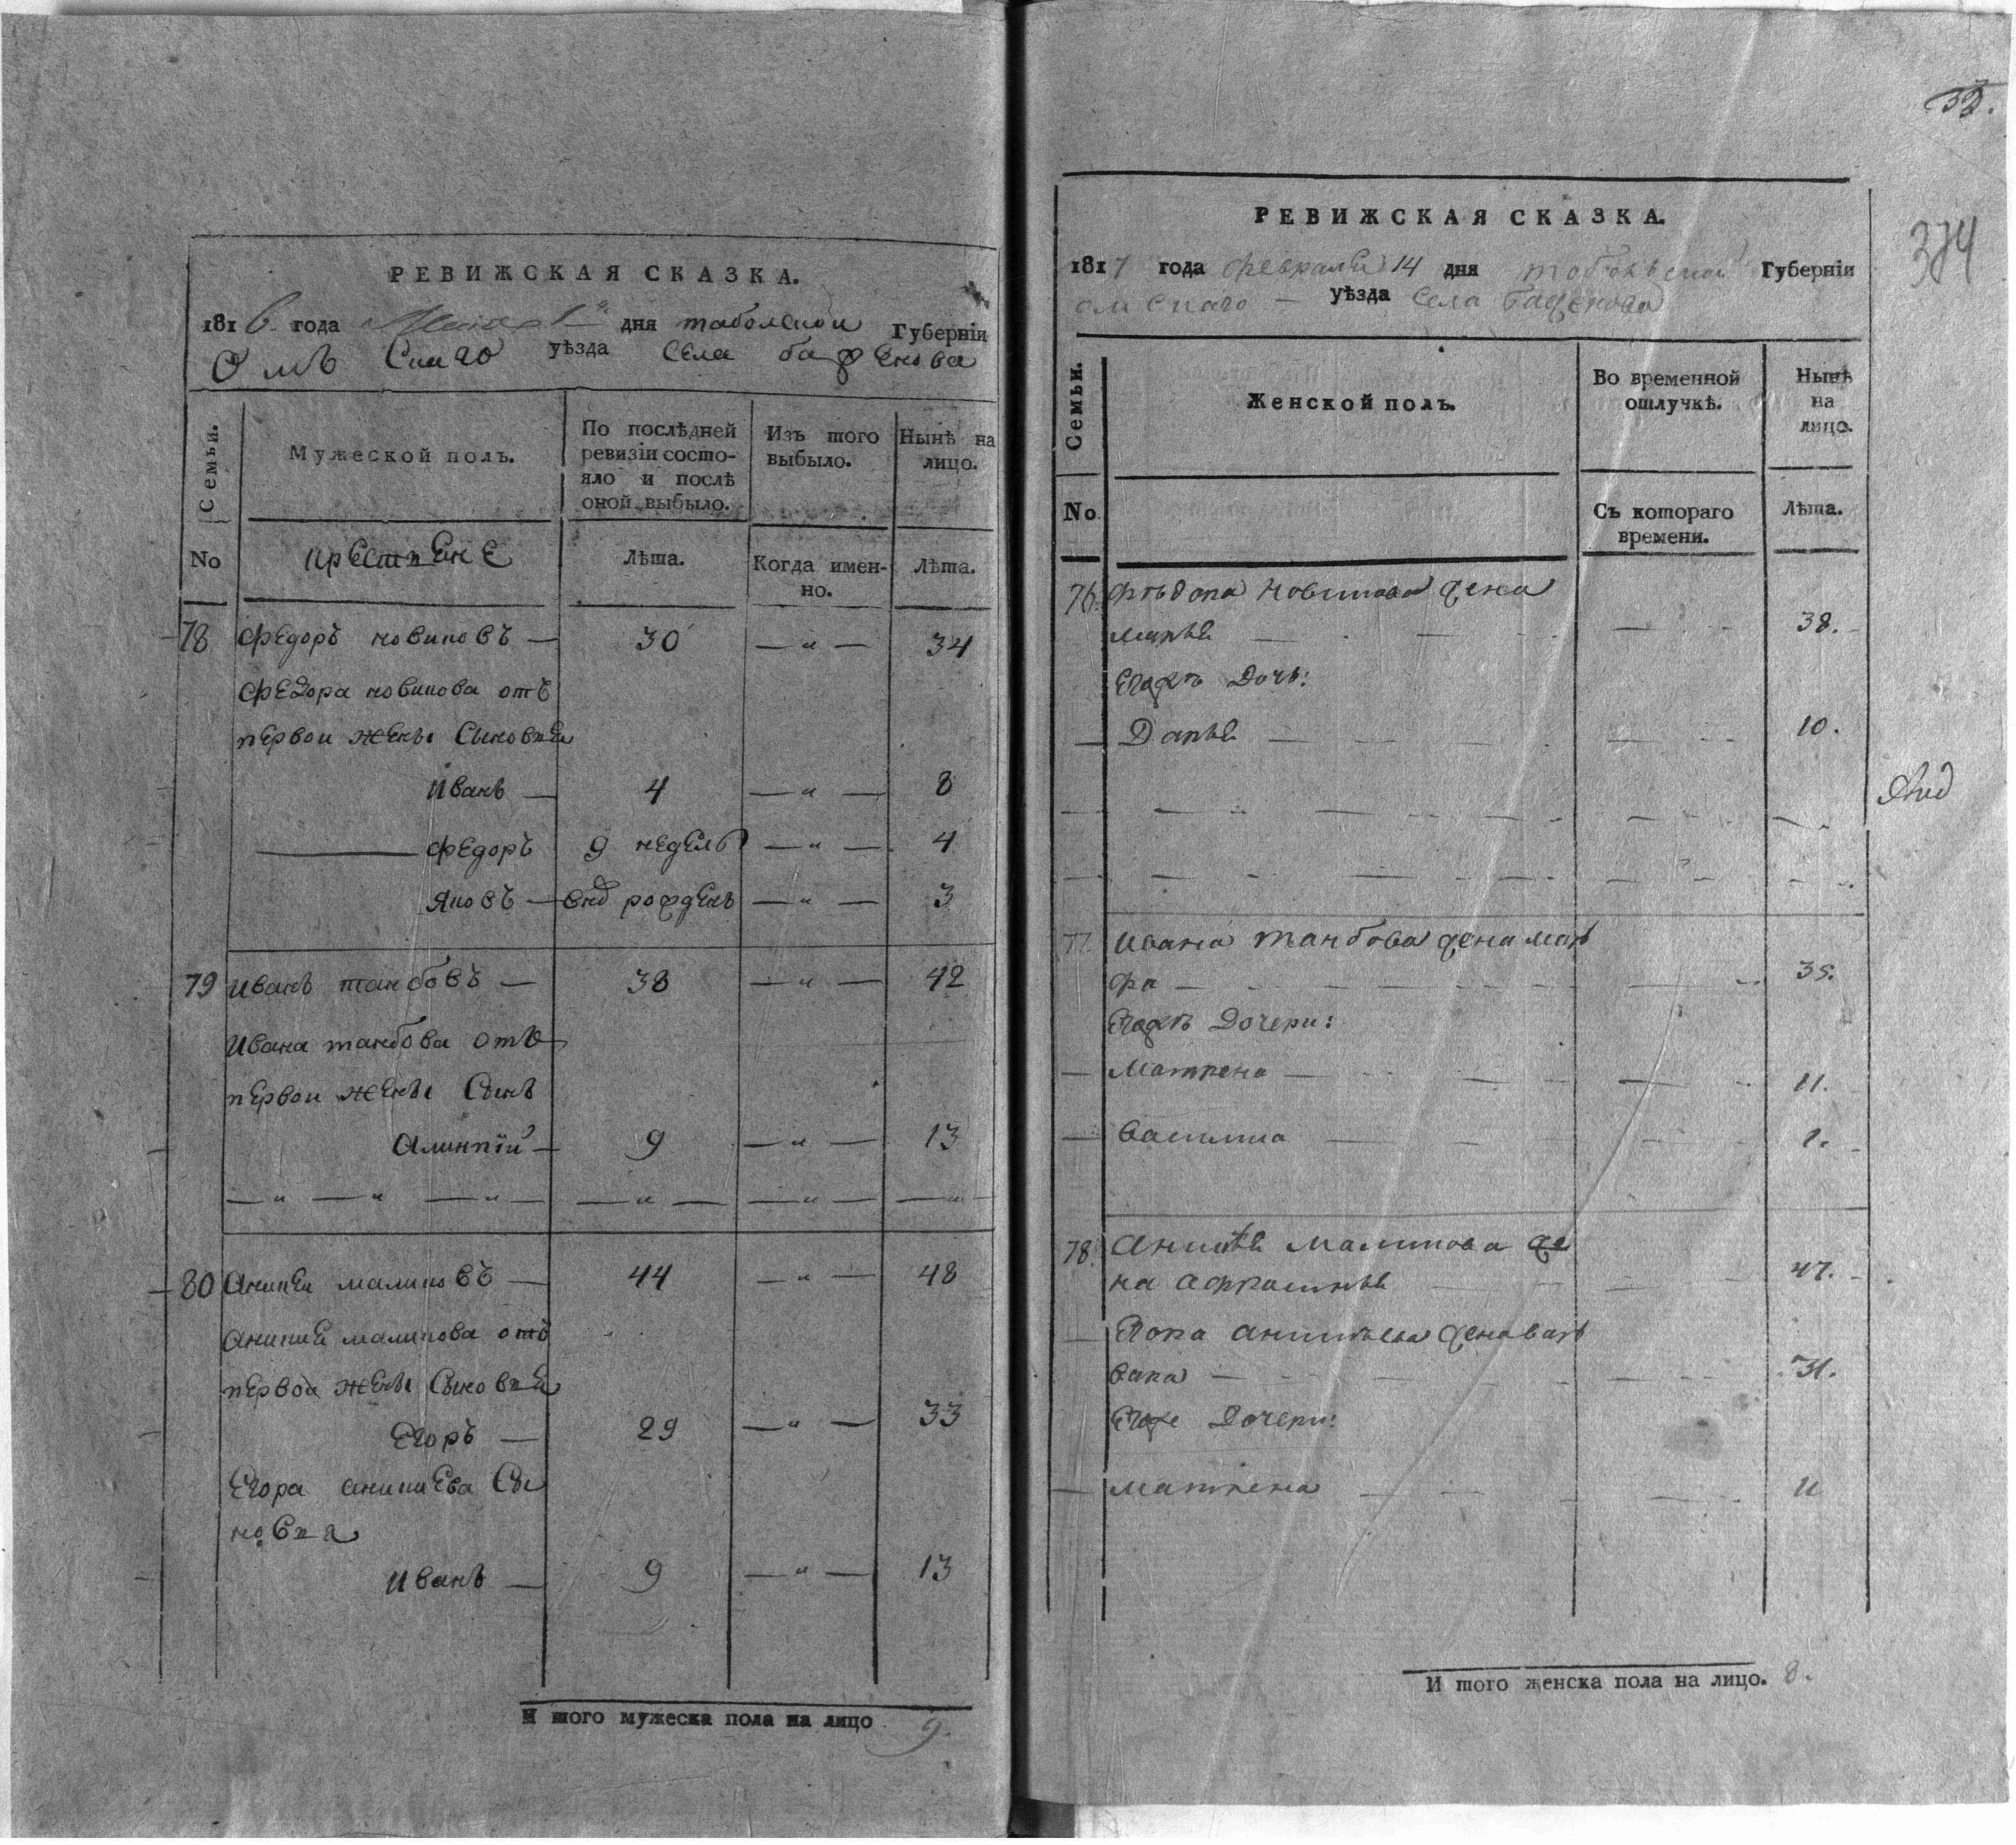 РЕВИЖСКАЯ СКАЗКА.
1816 года дня таболской Губерніи
Омъ Скаго уѣзда Села бажЕнова
Семьи.
Мужеской полъ.
По послѣдней ревизіи состояло и послѣ оной выбыло.
Изъ того выбыло.
Нынѣ на лицо.
No
крЕстьянЕ
Лѣта.
Когда именно.
Лѣта.
78 ФЕдоръ новиковъ — 30 — „ — 34
ФЕдора новикова отъ
пЕрвои жЕны Сыновья
Иванъ — 4 — „ — 8
— ФЕдоръ 9 нЕдЕль — „ — 4
Яковъ — рождЕнъ — „ — 3
79 Иванъ танбовъ — 38 — „ — 42
Ивана танбова отъ
пЕрвои жЕны Сынъ
Алимпій — 9 — „ — 13
— „ — „ — „ — — „ — — „ — — „ —
80 АникЕи маликовъ — 44 — „ — 48
АникиЕ маликова отъ
пЕрвои жЕны Сыновья
Егоръ — 29 — „ — 33
Егора аникиЕва Сы
новья
Иванъ — 9 — „ — 13
И того мужеска пола на лицо 9.
33.
374
РЕВИЖСКАЯ СКАЗКА.
1817 года февраля 14 дня тобольской Губерніи
омскаго — уѣзда Села Баженова
Семьи.
Женской полъ.
Во временной отлучкѣ.
Нынѣ на лицо.
No.
Съ котораго времени.
Лѣта.
76. Фѣдора Новикова жена
марья — 38.
Егожъ Дочь:
— Дарья — 10.
77. Ивана танбова жена мар
фа — 35.
Егожъ Дочери:
— Матрена — 11.
— Василиса — 1.
78. Аникѣя Маликова же
на Афросинья 47.
— Егора аникѣева жена вар
вара — 31.
Егоже Дочери:
— матрена — 11
И того женска пола на лицо. 8.